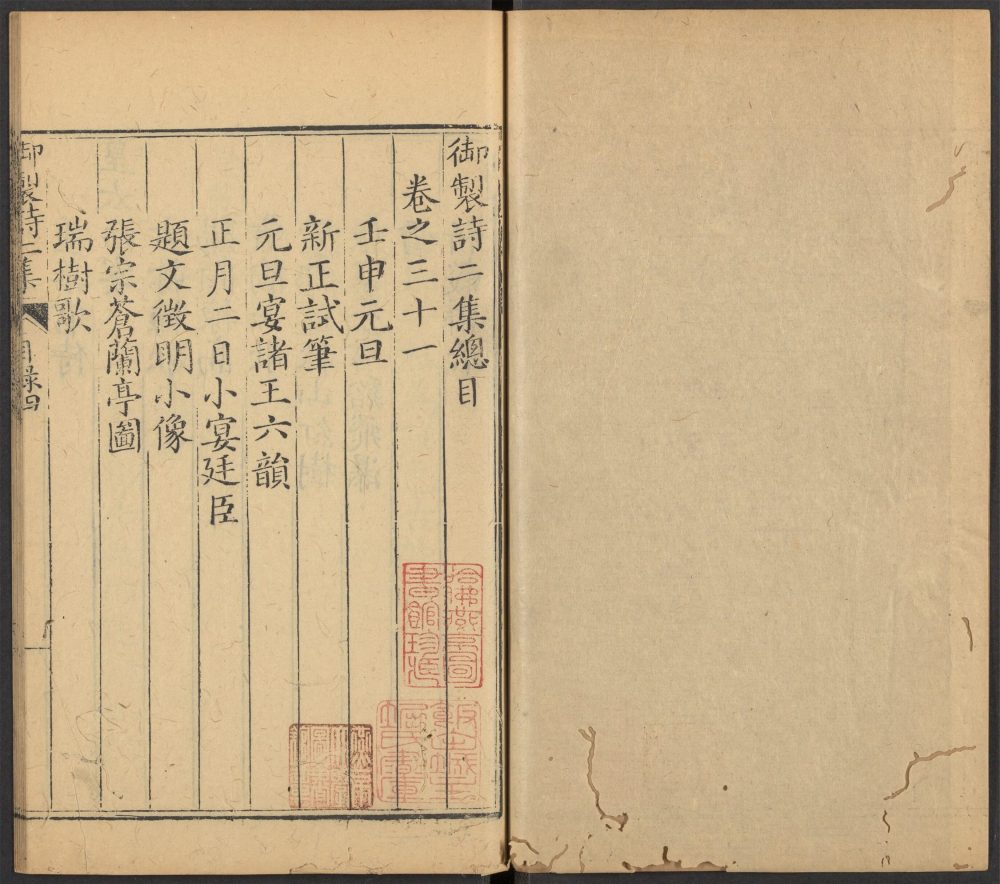 御製詩二集總目
卷之三十一
壬申元旦
新正試筆
元旦宴諸王六韻
正月二日小宴廷臣
題文徵明小像
張宗蒼蘭亭圖
瑞樹歌
御製詩二集
目錄四
哈佛燕京圖
書館珍藏